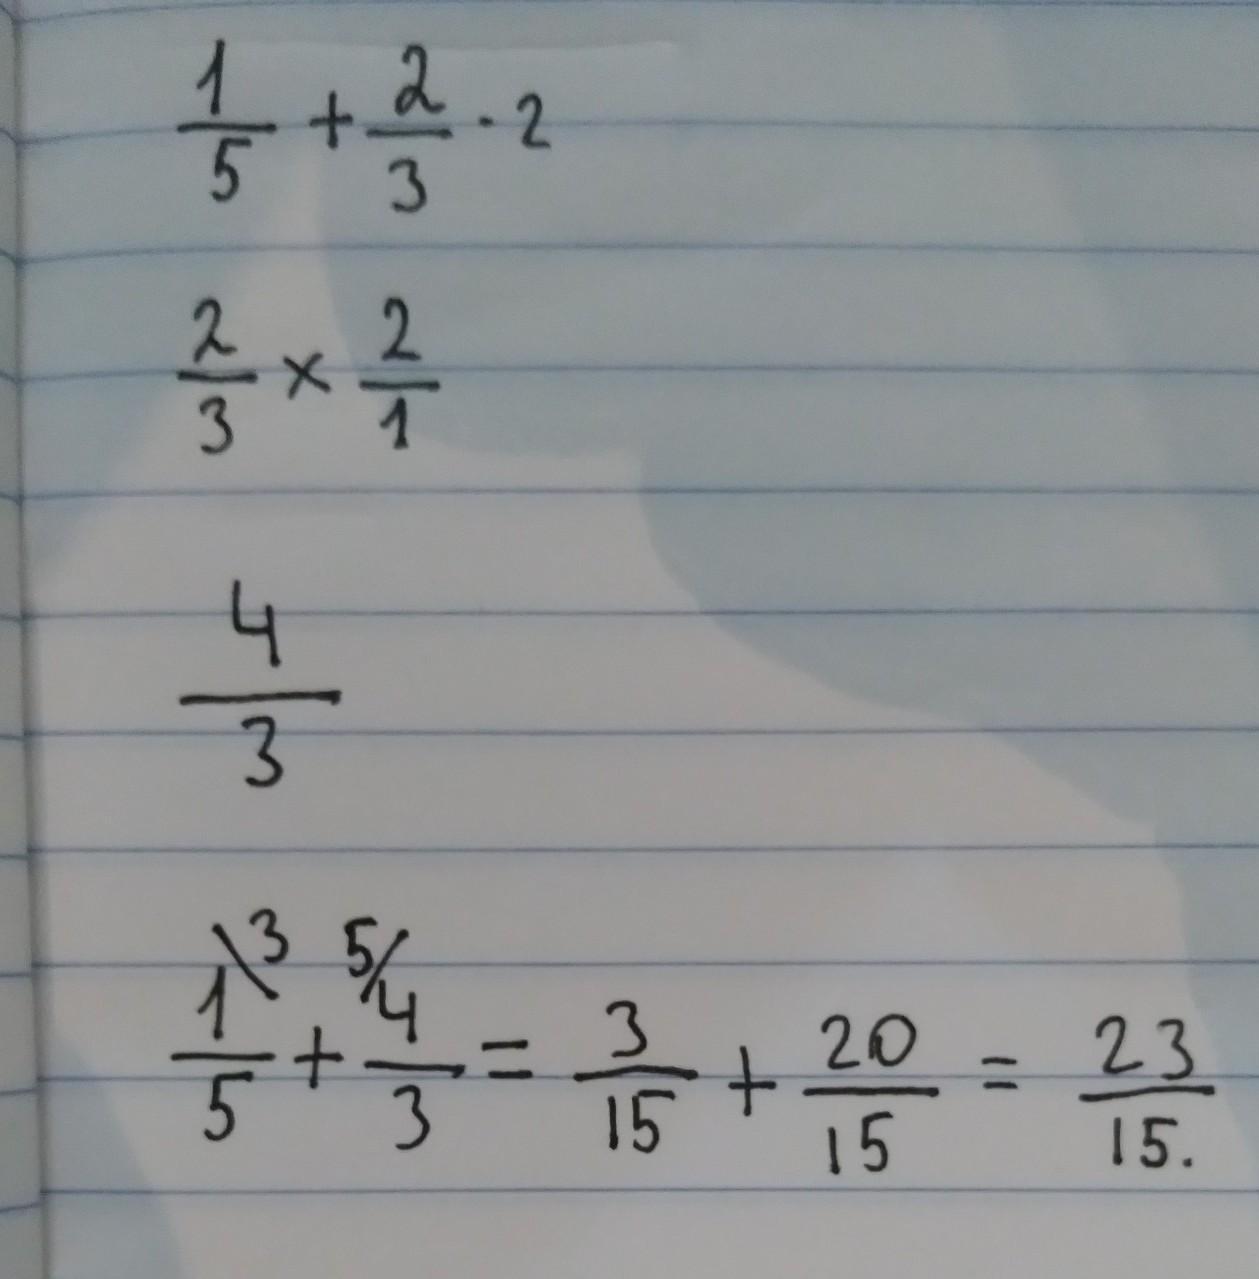 1/5 + 2/3 · 2
2/3 × 2/1
4/3
1\3/5 + 5/4/3 = 3/15 + 20/15 = 23/15.